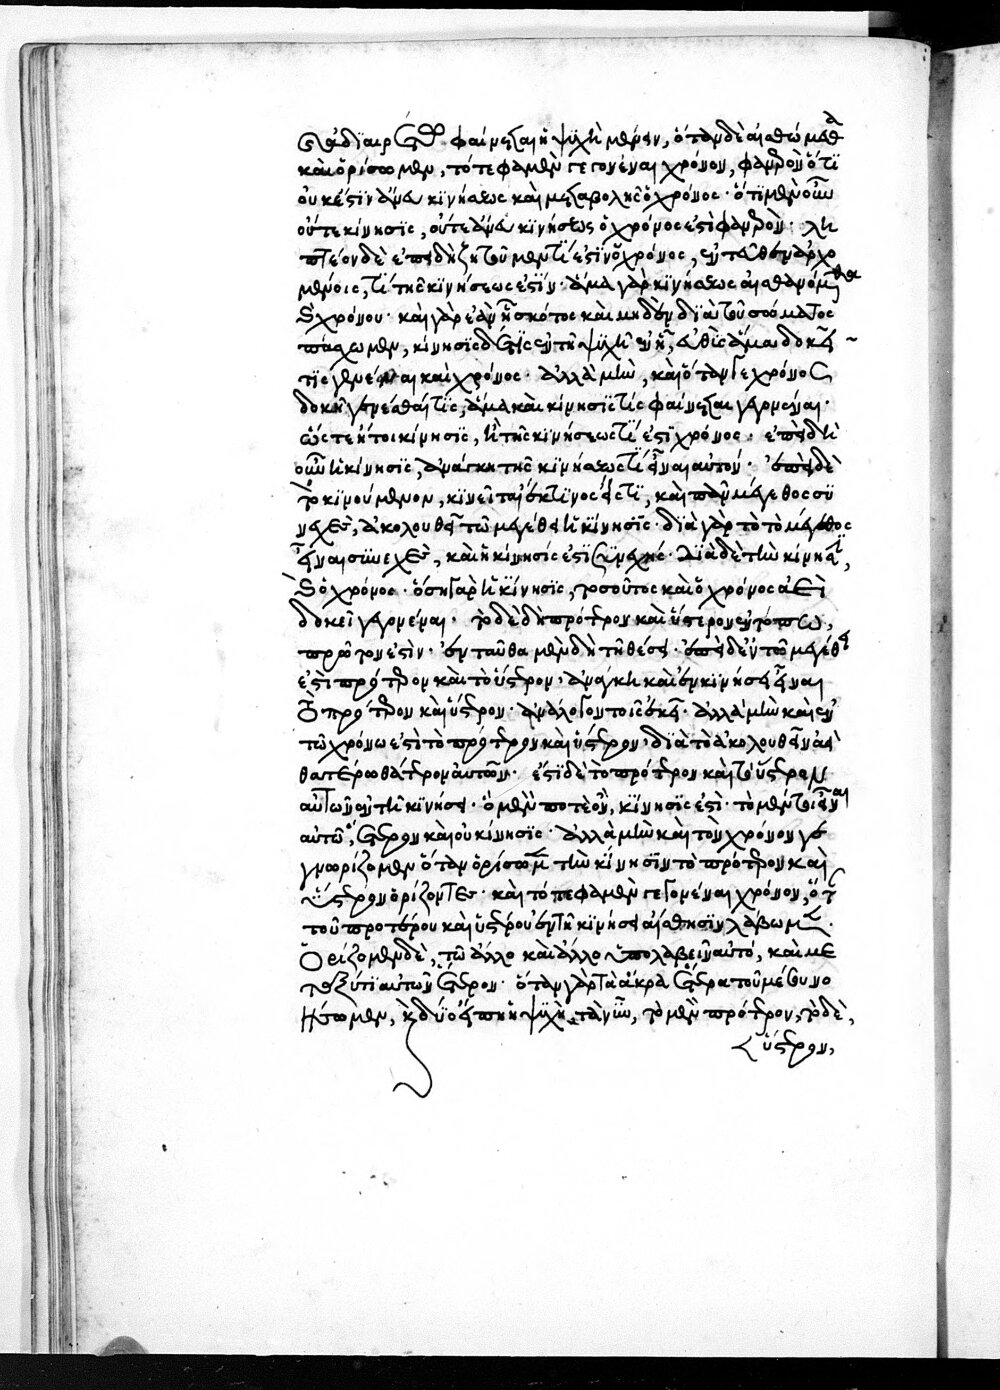 καὶ ἀδιαιρέτῳ φαίνεται ἡ ψυχὴ μένειν, ὅταν δὲ αἰσθώμεθα
καὶ ὁρίσωμεν, τότε φαμὲν γεγονέναι χρόνον, φανερὸν ὅτι
οὐκ ἔστιν ἄνευ κινήσεως καὶ μεταβολῆς ὁ χρόνος· ὅτι μὲν οὖν
οὔτε κίνησις, οὔτε ἄνευ κινήσεως ὁ χρόνος ἐστὶ φανερόν· λη
πτέον δὲ ἐπειδὴ ζητοῦμεν τί ἐστιν ὁ χρόνος, ἐντεῦθεν ἀρχο
μένοις, τί τῆς κινήσεώς ἐστιν· ἅμα γὰρ κινήσεως αἰσθανόμεθα
καὶ χρόνου· καὶ γὰρ ἐὰν ᾖ σκότος καὶ μηδὲν διὰ τοῦ σώματος
πάσχωμεν, κίνησις δέ τις ἐν τῇ ψυχῇ ἐνῇ, εὐθὺς ἅμα δοκεῖ
τις γενέσθαι καὶ χρόνος· ἀλλὰ μὴν, καὶ ὅταν γε χρόνος
δοκῇ γενέσθαι τίς, ἅμα καὶ κίνησίς τις φαίνεται γεγονέναι·
ὥστε ἤτοι κίνησις, ἢ τῆς κινήσεώς τί ἐστι χρόνος· ἐπεὶ δὲ μὴ
οὖν ἡ κίνησις, ἀνάγκη τῆς κινήσεώς τι εἶναι αὐτόν· ἐπεὶ δὲ
τὸ κινούμενον, κινεῖται ἔκ τινος εἴς τι, καὶ πᾶν μέγεθος συ
νεχὲς, ἀκολουθεῖ τῷ μεγέθει ἡ κίνησις· διὰ γὰρ τὸ τὸ μέγεθος
εἶναι συνεχὲς, καὶ ἡ κίνησίς ἐστι συνεχής· διὰ δὲ τὴν κίνησιν,
καὶ ὁ χρόνος· ὅση γὰρ ἡ κίνησις, τοσοῦτος καὶ ὁ χρόνος ἀεὶ
δοκεῖ γεγονέναι· τὸ δὲ δὴ πρότερον καὶ ὕστερον ἐν τόπῳ,
πρῶτόν ἐστιν· ἐνταῦθα μὲν δὴ τῇ θέσει· ἐπεὶ δὲ ἐν τῷ μεγέθει
ἐστὶ πρότερον καὶ τὸ ὕστερον, ἀνάγκη καὶ ἐν κινήσει εἶναι
τὸ πρότερον καὶ ὕστερον· ἀνάλογον τοῖς ἐκεῖ· ἀλλὰ μὴν καὶ ἐν
τῷ χρόνῳ ἐστὶ τὸ πρότερον καὶ ὕστερον, διὰ τὸ ἀκολουθεῖν ἀεὶ
θατέρῳ θάτερον αὐτῶν· ἔστι δὲ τὸ πρότερον καὶ τὸ ὕστερον
αὐτῶν ἐν τῇ κινήσει· ὃ μέν ποτε ὄν, κίνησίς ἐστι· τὸ μέντοι εἶναι
αὐτῷ, ἕτερον καὶ οὐ κίνησις· ἀλλὰ μὴν καὶ τὸν χρόνον γε
γνωρίζομεν ὅταν ὁρίσωμεν τὴν κίνησιν τὸ πρότερον καὶ
ὕστερον ὁρίζοντες· καὶ τότε φαμὲν γεγονέναι χρόνον, ὅτε
τοῦ προτέρου καὶ ὑστέρου ἐν τῇ κινήσει αἴσθησιν λάβωμεν·
Ὁρίζομεν δὲ, τῷ ἄλλο καὶ ἄλλο ὑπολαβεῖν αὐτό, καὶ με
ταξύ τι αὐτῶν ἕτερον· ὅταν γὰρ τὰ ἄκρα ἕτερα τοῦ μέσου νο
ήσωμεν, καὶ δύο εἴπῃ ἡ ψυχὴ τὰ νῦν, τὸ μὲν πρότερον, τὸ δὲ,
ὕστερον,